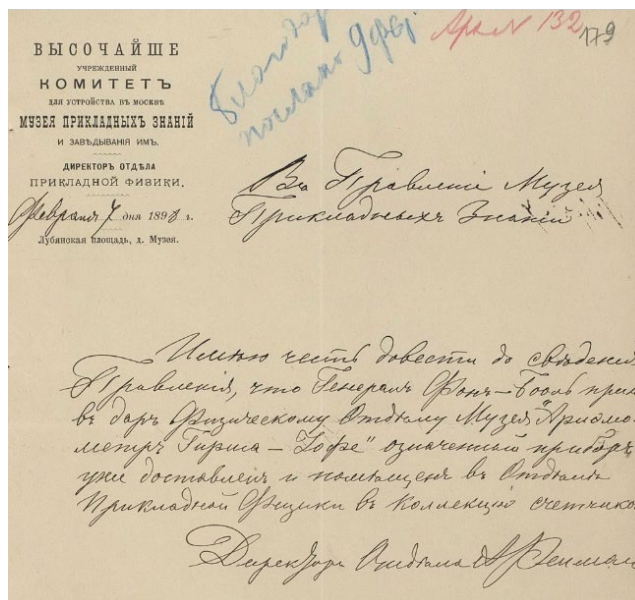 ВЫСОЧАЙШЕ
УЧРЕЖДЕННЫЙ
КОМИТЕТЪ
ДЛЯ УСТРОЙСТВА ВЪ МОСКВѢ
МУЗЕЯ ПРИКЛАДНЫХЪ ЗНАНІЙ
И ЗАВѢДЫВАНІЯ ИМЪ.
ДИРЕКТОРЪ ОТДѢЛА
ПРИКЛАДНОЙ ФИЗИКИ.
Февраля 7 дня 1898 г.
Лубянская площадь, д. Музея.
послано 9 фев
132
179
Въ Правленіе Музея
Прикладныхъ Знаній
Имѣю честь довести до свѣденія
Правленія, что Генералъ Фонъ-Бооль
въ даръ Физическому Отдѣлу Музея "Ариѳмо-
метръ Гирша-Зофе" означенный приборъ
уже доставленъ и помѣщенъ въ Отдѣлѣ
Прикладной Физики въ коллекцію счетчико
Директоръ Отдѣла